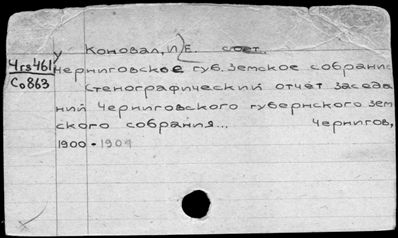 Коновал, И.Е. сост.
Чгs461
Со863
Черниговское губ. земское собрание
Стенографический отчет заседа
ний Черниговского губернского зем
ского собрания... Чернигов,
1900-1901